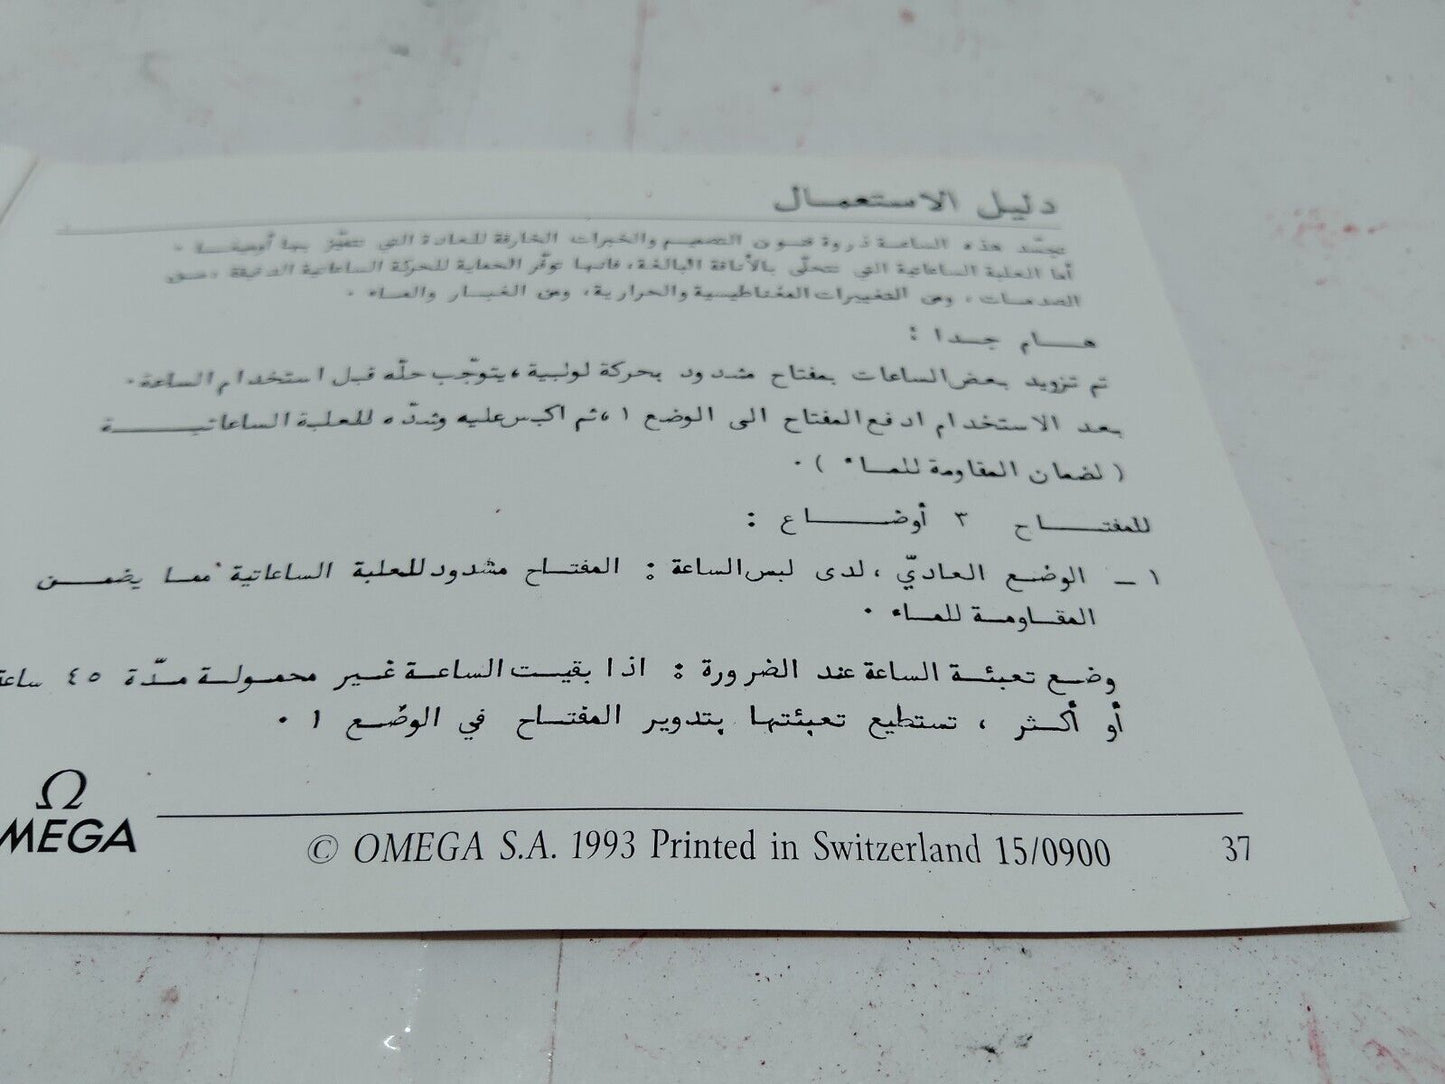 دليل الاستعمال
تجسّد هذه الساعة ذروة فنون التصميم والخبرات الخارقة للعادة التي تتميّز بها أوميغا .
أما العلبة الساعاتية التي تتحلّى بالأناقة البالغة، فانها توفّر الحماية للحركة الساعاتية الدقيقة من
الصدمات ، ومن التغييرات المغناطيسية والحرارية، ومن الغبار والماء .
هام جدا :
تم تزويد بعض الساعات بمفتاح مشدود بحركة لولبية ، يتوجّب حلّه قبل استخدام الساعة .
بعد الاستخدام ادفع المفتاح الى الوضع ١ ، ثم اكبس عليه وشدّه للعلبة الساعاتية
( لضمان المقاومة للماء ) .
للمفتاح ٣ أوضاع :
١ - الوضع العاديّ ، لدى لبس الساعة : المفتاح مشدود للعلبة الساعاتية مما يضمن
المقاومة للماء .
وضع تعبئة الساعة عند الضرورة : اذا بقيت الساعة غير محمولة مدّة ٤٥ ساعة
أو أكثر ، تستطيع تعبئتها بتدوير المفتاح في الوضع ١ .
Ω
MEGA
© OMEGA S.A. 1993 Printed in Switzerland 15/0900
37